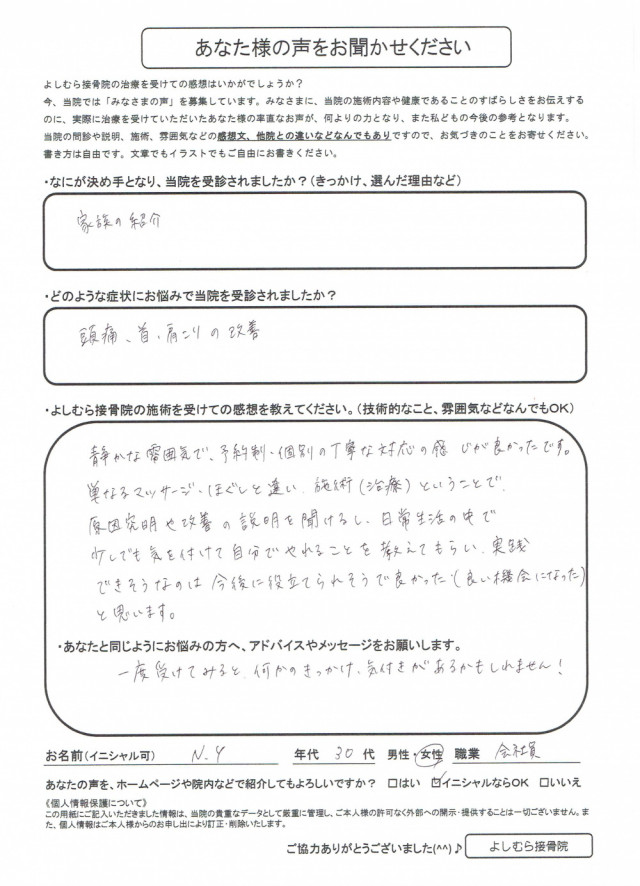 あなた様の声をお聞かせください
よしむら接骨院の治療を受けての感想はいかがでしょうか？
今、当院では「みなさまの声」を募集しています。みなさまに、当院の施術内容や健康であることのすばらしさをお伝えする
のに、実際に治療を受けていただいたあなた様の率直なお声が、何よりの力となり、また私どもの今後の参考となります。
当院の問診や説明、施術、雰囲気などの感想文、他院との違いなどなんでもありですので、お気づきのことをお寄せください。
書き方は自由です。文章でもイラストでもご自由にお書きください。
・なにが決め手となり、当院を受診されましたか？（きっかけ、選んだ理由など）
家族の紹介
・どのような症状にお悩みで当院を受診されましたか？
頭痛、首、肩こりの改善
・よしむら接骨院の施術を受けての感想を教えてください。（技術的なこと、雰囲気などなんでもOK）
静かな雰囲気で、予約制・個別の丁寧な対応の感じが良かったです。
単なるマッサージ・ほぐしと違い、施術（治療）ということで、
原因究明や改善の説明を聞けるし、日常生活の中で
少しでも気を付けて自分でやれることを教えてもらい、実践
できそうなのは今後に役立てられそうで良かった（良い機会になった）
と思います。
・あなたと同じようにお悩みの方へ、アドバイスやメッセージをお願いします。
一度受けてみると、何かのきっかけ、気付きがあるかもしれません！
お名前（イニシャル可） N.Y 年代 30 代 男性・女性 職業 会社員
あなたの声を、ホームページや院内などで紹介してもよろしいですか？ □はい ☑イニシャルならOK □いいえ
《個人情報保護について》
この用紙にご記入いただきました情報は、当院の貴重なデータとして厳重に管理し、ご本人様の許可なく外部への開示・提供することは一切ございません。ま
た、個人情報はご本人様からのお申し出により訂正・削除いたします。
ご協力ありがとうございました(^^)♪ よしむら接骨院